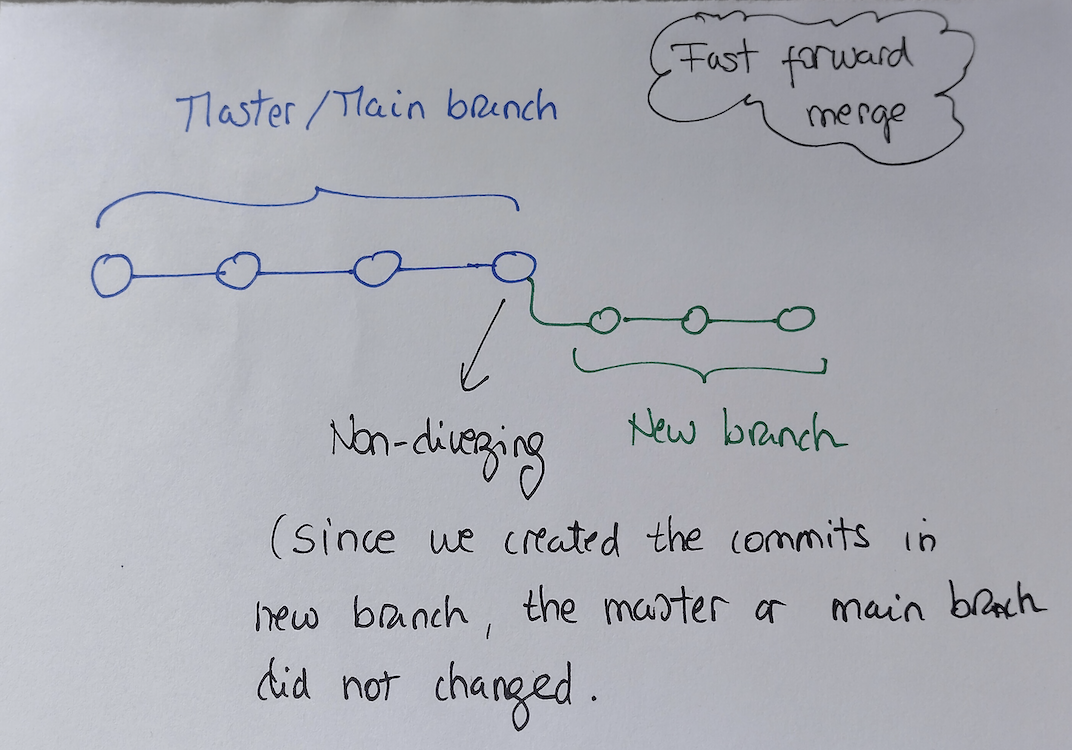 Fast forward
merge
Master/Main branch
Non-diverging
New branch
(since we created the commits in
new branch, the master or main branch
did not changed.